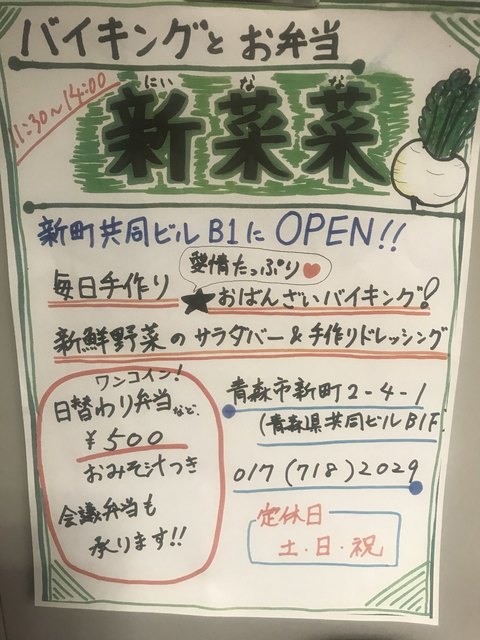 バイキングとお弁当
11:30〜14:00
にいなな
新菜菜
新町共同ビルB1にOPEN!!
愛情たっぷり♥
毎日手作り★おばんざいバイキング!
新鮮野菜のサラダバー&手作りドレッシング
ワンコイン!
日替わり弁当など、
¥500
おみそ汁つき
会議弁当も
承ります!!
青森市新町2-4-1
(青森県共同ビルB1F
017(718)2029
定休日
土・日・祝